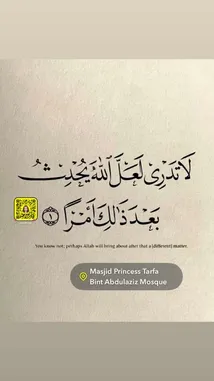 لَا تَدْرِى لَعَلَّ ٱللَّهَ يُحْدِثُ
بَعْدَ ذَٰلِكَ أَمْرًا ١
You know not; perhaps Allah will bring about after that a [different] matter.
Masjid Princess Tarfa
Bint Abdulaziz Mosque